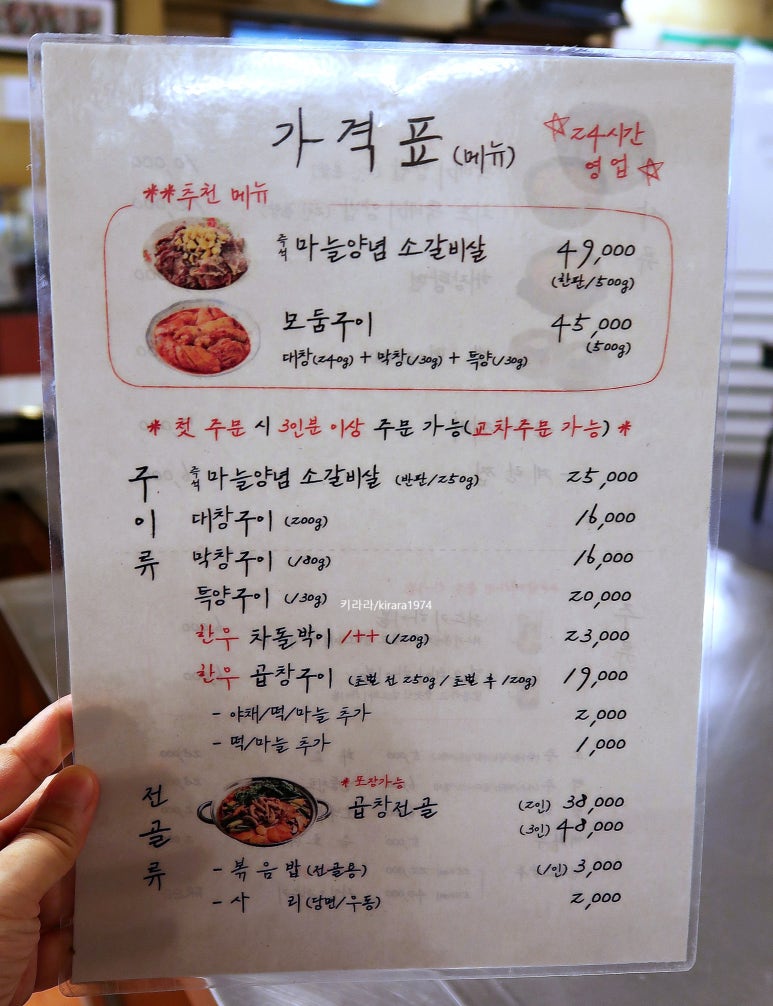 가격표 (메뉴)
☆24시간
영업☆
**추천 메뉴
즉석 마늘양념 소갈비살 49,000
(한판/500g)
모둠구이 45,000
대창(240g) + 막창(130g) + 특양(130g) (500g)
* 첫 주문 시 3인분 이상 주문 가능(교차주문 가능) *
구이류
즉석 마늘양념 소갈비살 (반판/250g) 25,000
대창구이 (200g) 16,000
막창구이 (180g) 16,000
특양구이 (130g) 20,000
키라라/kirara1974
한우 차돌박이 1++ (120g) 23,000
한우 곱창구이 (초벌 전 250g / 초벌 후 120g) 19,000
- 야채/떡/마늘 추가 2,000
- 떡/마늘 추가 1,000
전골류
*포장가능
곱창전골 (2인) 38,000
(3인) 48,000
- 볶음밥 (전골용) (1인) 3,000
- 사 리 (당면/우동) 2,000